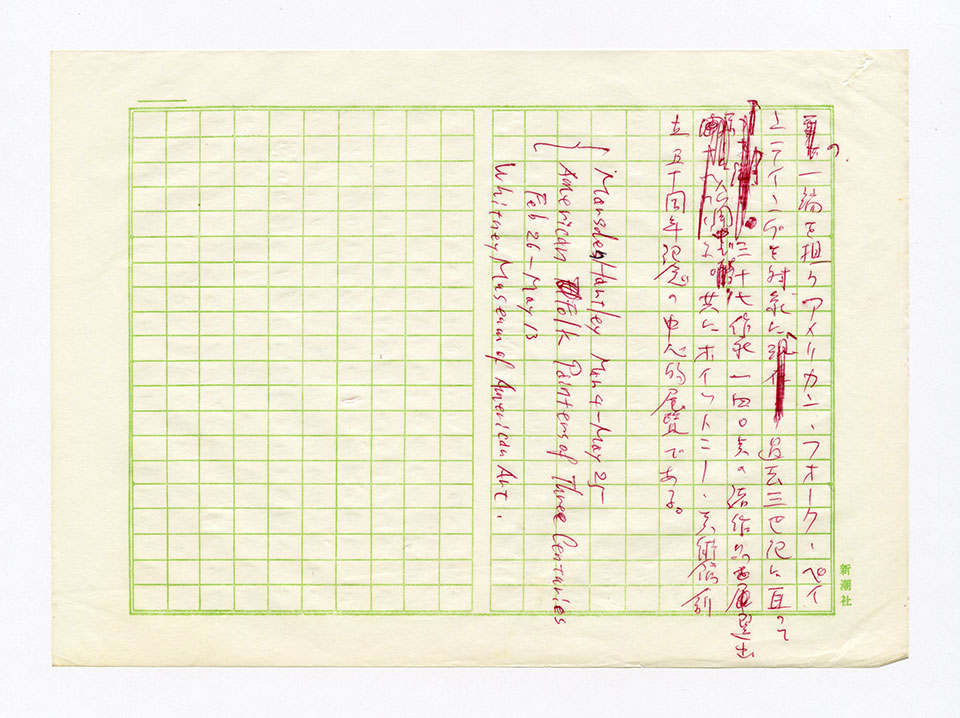 の一端を担うアメリカン・フォーク・ペイ
ンティングを対象に、過去三世紀に亘って
三十七作家一四〇点の
共にホイットニー・美術館創
立五十周年記念の中心的展覧である。
Marsden Hartley Mar 4 – May 25
American Folk Painters of Three Centuries
Feb 26 – May 13
Whitney Museum of American Art.
新潮社